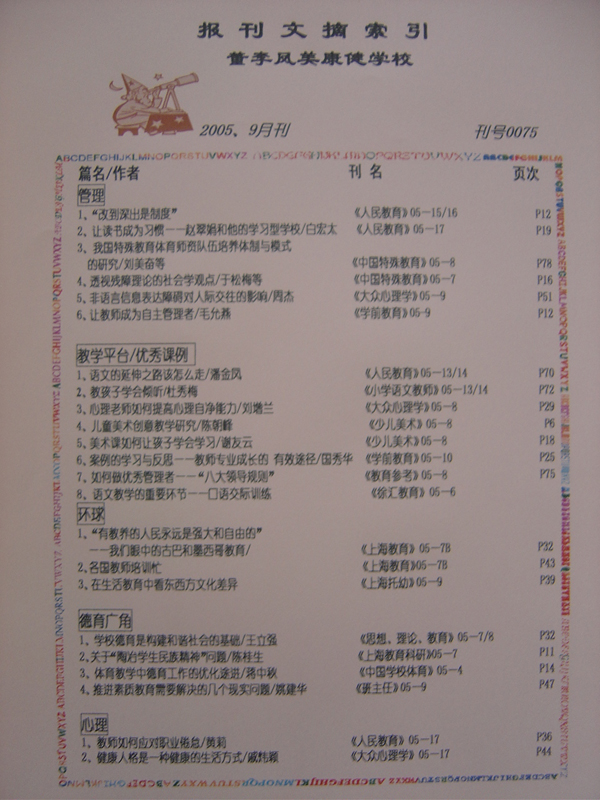 报刊文摘索引
董李凤美康健学校
2005、9月刊 刊号0075
ABCDEFGHIJKLMNOPQRSTUVWXYZ
篇名/作者 刊名 页次
管理
1、“改到深出是制度” 《人民教育》05-15/16 P12
2、让读书成为习惯——赵翠娟和他的学习型学校/白宏太 《人民教育》05-17 P19
3、我国特殊教育体育师资队伍培养体制与模式
的研究/刘美奋等 《中国特殊教育》05-8 P78
4、透视残障理论的社会学观点/于松梅等 《中国特殊教育》05-7 P16
5、非语言信息表达障碍对人际交往的影响/周杰 《大众心理学》05-9 P51
6、让教师成为自主管理者/毛允燕 《学前教育》05-9 P12
教学平台/优秀课例
1、语文的延伸之路该怎么走/潘金凤 《人民教育》05-13/14 P70
2、教孩子学会倾听/杜秀梅 《小学语文教师》05-13/14 P72
3、心理老师如何提高心理自净能力/刘增兰 《大众心理学》05-8 P29
4、儿童美术创意教学研究/陈朝峰 《少儿美术》05-8 P6
5、美术课如何让孩子学会学习/谢友云 《少儿美术》05-8 P18
6、案例的学习与反思——教师专业成长的 有效途径/国秀华 《学前教育》05-10 P25
7、如何做优秀管理者——“八大领导规则” 《教育参考》05-8 P75
8、语文教学的重要环节——口语交际训练 《徐汇教育》05-6
环球
1、“有教养的人民永远是强大和自由的”
——我们眼中的古巴和墨西哥教育/ 《上海教育》05-78 P32
2、各国教师培训忙 《上海教育》05-78 P43
3、在生活教育中看东西方文化差异 《上海托幼》05-9 P39
德育广角
1、学校德育是构建和谐社会的基础/王立强 《思想、理论、教育》05-7/8 P32
2、关于“陶冶学生民族精神”问题/陈桂生 《上海教育科研》05-7 P11
3、体育教学中德育工作的优化途进/蒋中秋 《中国学校体育》05-4 P14
4、推进素质教育需要解决的几个现实问题/姚建华 《班主任》05-9 P47
心理
1、教师如何应对职业倦怠/黄莉 《人民教育》05-17 P36
2、健康人格是一种健康的生活方式/戚炜颖 《大众心理学》05-17 P44